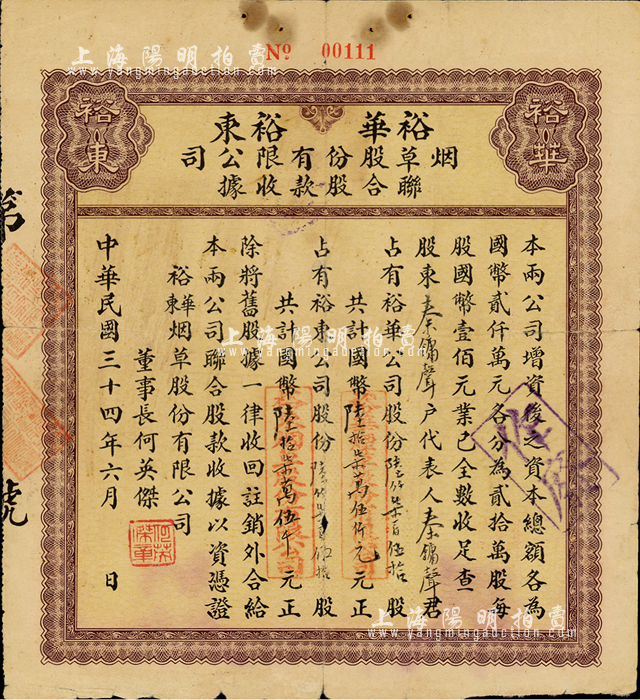 上海陽明拍賣
www.yangmingauction.com
Nº 00111
裕華
裕東
裕華 裕東
烟草股份有限公司
聯合股款收據
本兩公司增資後之資本總額各為
國幣貳仟萬元各分為貳拾萬股每
股國幣壹佰元業已全數收足查
股東秦鏞聲戶代表人秦鏞聲君
占有裕華公司股份陸仟柒百伍拾股
共計國幣陸拾柒萬伍仟元正
占有裕東公司股份陸仟柒百伍拾股
共計國幣陸拾柒萬伍仟元正
除將舊股據一律收回註銷外合給
本兩公司聯合股款收據以資憑證
裕華
裕東
烟草股份有限公司
董事長何英傑
中華民國三十四年六月 日
第
號
上海陽明拍賣
www.yangmingauction.com
上海陽明拍賣
www.yangmingauction.com